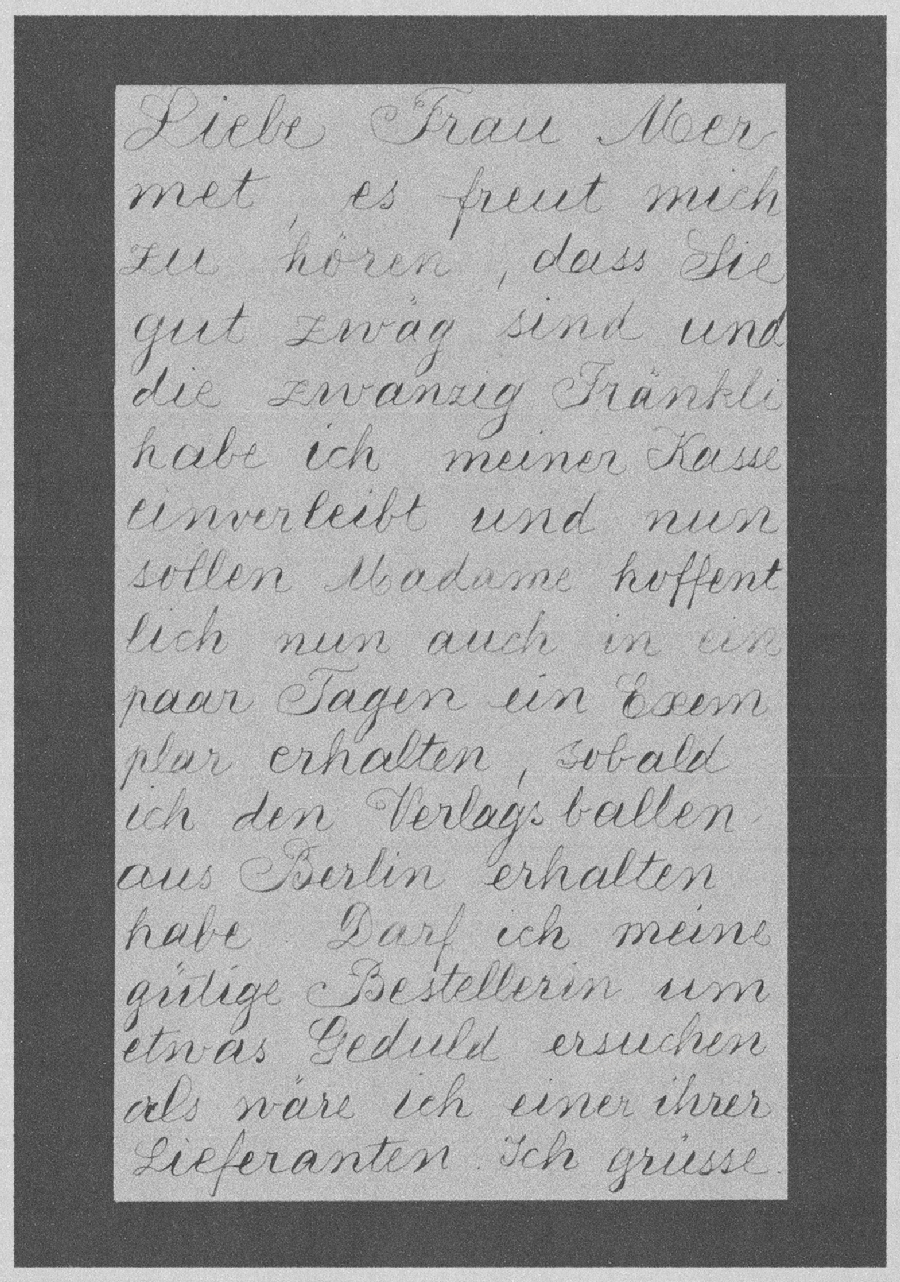 Liebe Frau Mer
met, es freut mich
zu hören, dass Sie
gut zwäg sind und
die zwanzig Fränkli
habe ich meiner Kasse
einverleibt und nun
sollen Madame hoffent
lich nun auch in ein
paar Tagen ein Exem
plar erhalten, sobald
ich den Verlagsballen
aus Berlin erhalten
habe. Darf ich meine
gütige Bestellerin um
etwas Geduld ersuchen
als wäre ich einer ihrer
Lieferanten. Ich grüsse